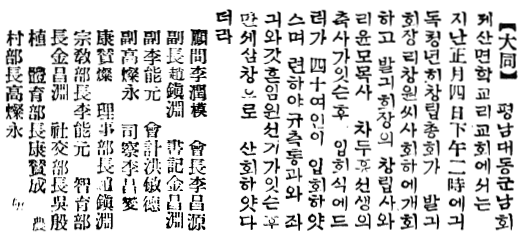 【大同】 평남대동군남회
제산면학교리교회에서는
지난正月四日下午二時에긔
독청년회창립총회가 발긔
회장리창원씨사회하에개회
하고 발긔회장의 창립사와
리윤모목사 차두휴선생의
축사가잇슨후 입회식에드
러가 四十여인이 입회하얏
스며 련하야규측통과와 좌
긔와갓흔임원선거가잇슨후
만세삼창으로 산회하얏다
더라
顧問李潤模 會長李昌源
副長趙鎭淵 書記金昌淵
副李能元 會計洪敏德
副高燦永 司察李昌燮
康贊燦 理事部長趙鎭淵
宗敎部長李能元 智育部
長金昌淵 社交部長吳殷
植 體育部長康贊成 農
村部長高燦永